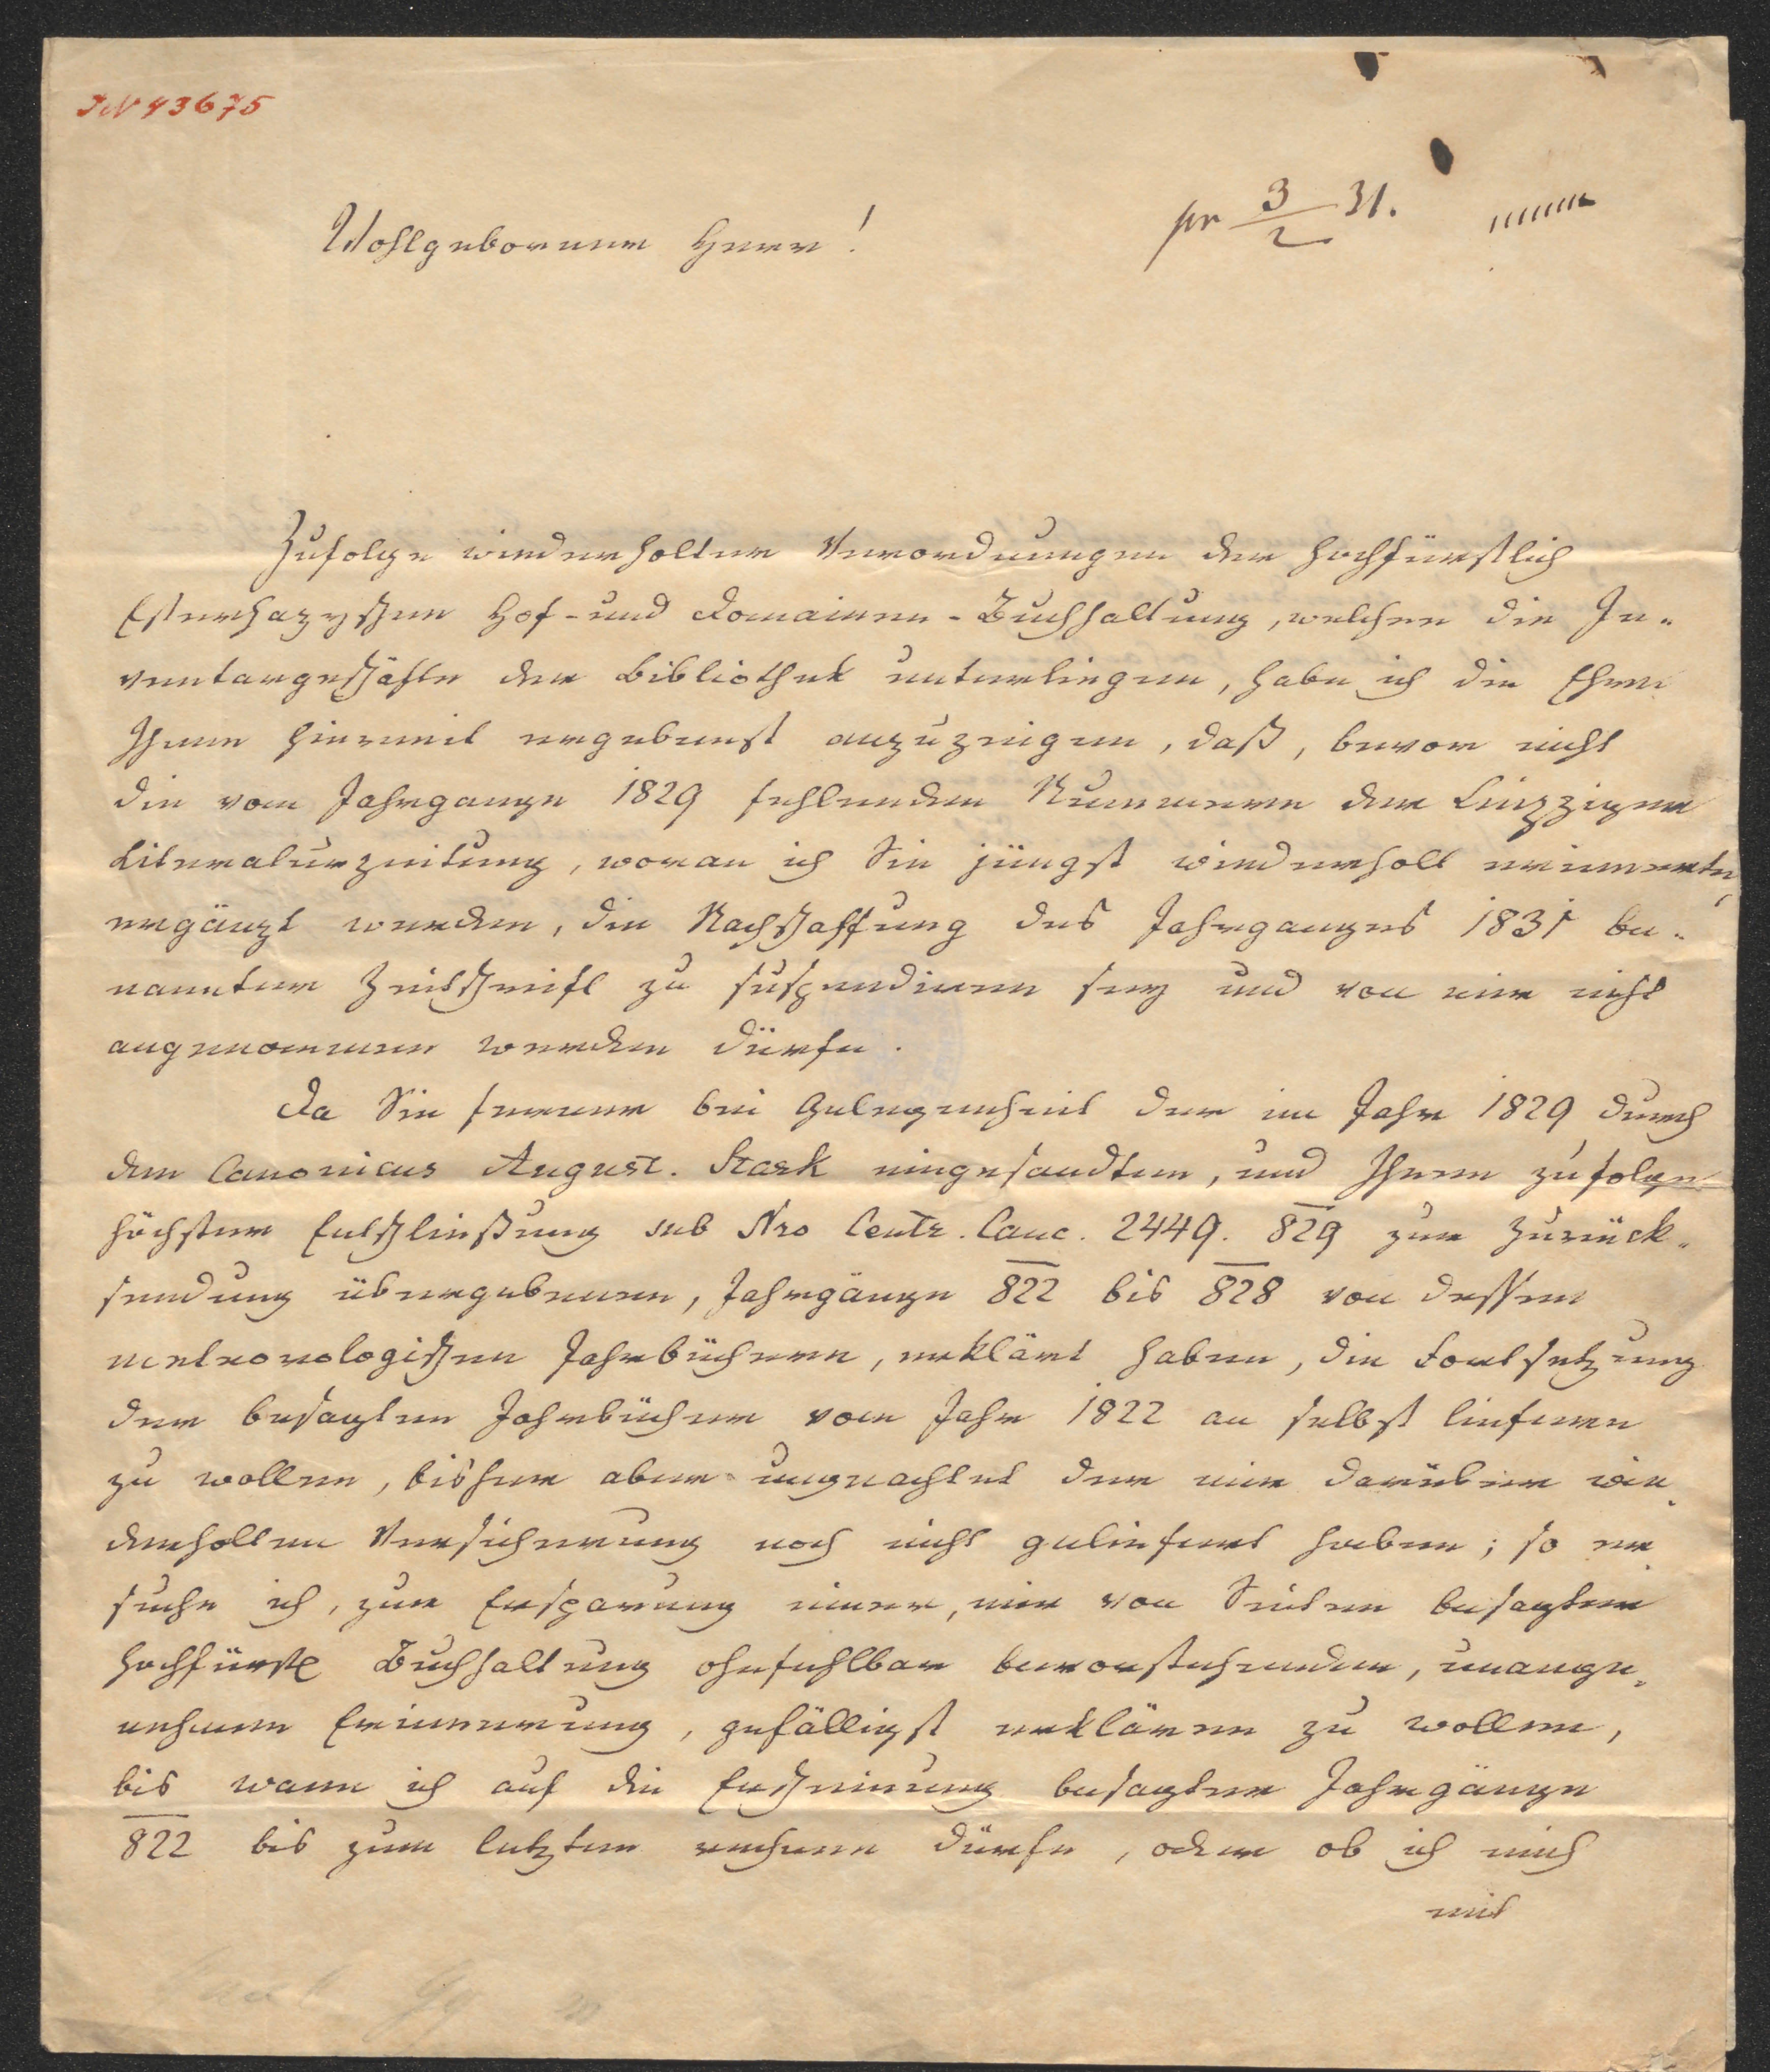 IN 43675
pr 3/2 31.
Wohlgeborener Herr!
Zufolge wiederholter Verordnungen der hochfürstlich
Esterhazyschen Hof- und Domainen-Buchhaltung, welcher die In-
ventargeschäfte der Bibliothek unterliegen, habe ich die Ehre
Ihnen hiermit ergebenst anzuzeigen, daß, bevor nicht
die vom Jahrgange 1829 fehlenden Nummern der Leipziger
Literaturzeitung, woran ich Sie jüngst wiederholt erinnerte,
ergänzt werden, die Nachschaffung des Jahrganges 1831 be-
nannter Zeitschrift zu suspendieren sey und von mir nicht
angenommen werden dürfe.
Da Sie ferner bei Gelegenheit der im Jahr 1829 durch
den Canonicus August. Stark eingesandten, und Ihnen zufolge
höchster Entschließung sub Nro Centr. Canc. 2449. 829 zur Zurück-
sendung übergebenen, Jahrgänge 822 bis 828 von dessen
meteorologischen Jahrbüchern, erklärt haben, die Fortsetzung
der besagten Jahrbücher vom Jahr 1822 an selbst liefern
zu wollen, bisher aber ungeachtet der mir darüber wie-
derholten Versicherung noch nicht geliefert haben; so er-
suche ich, zur Ersparung einer, mir von Seiten besagter
hochfürstl Buchhaltung ohnfehlbar bevorstehenden, unange-
nehmen Erinnerung, gefälligst erklären zu wollen,
bis wann ich auf die Erscheinung besagter Jahrgänge
822 bis zum letzten rechnen dürfe, oder ob ich mich
mit